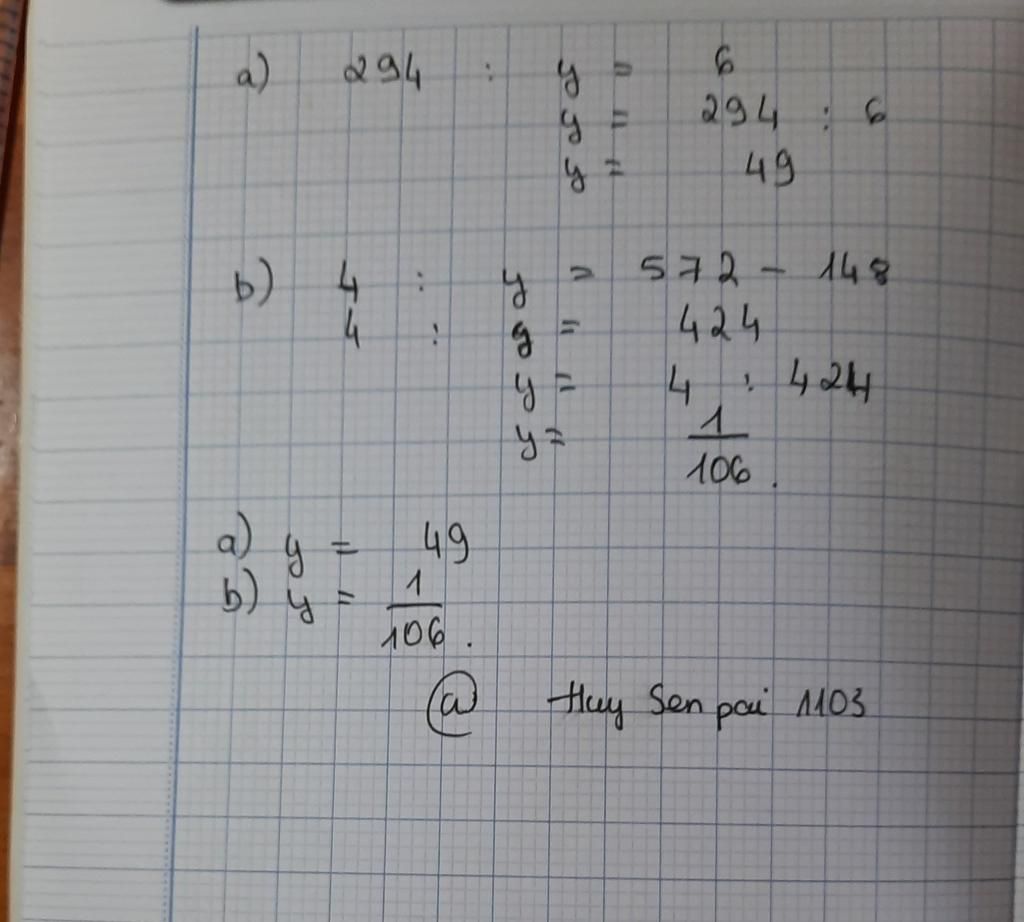 a) 294 : y = 6
y = 294 : 6
y = 49
b) 4 : y = 572 - 148
4 : y = 424
y = 4 : 424
y = 1/106.
a) y = 49
b) y = 1/106.
@ Huy Senpai 1103